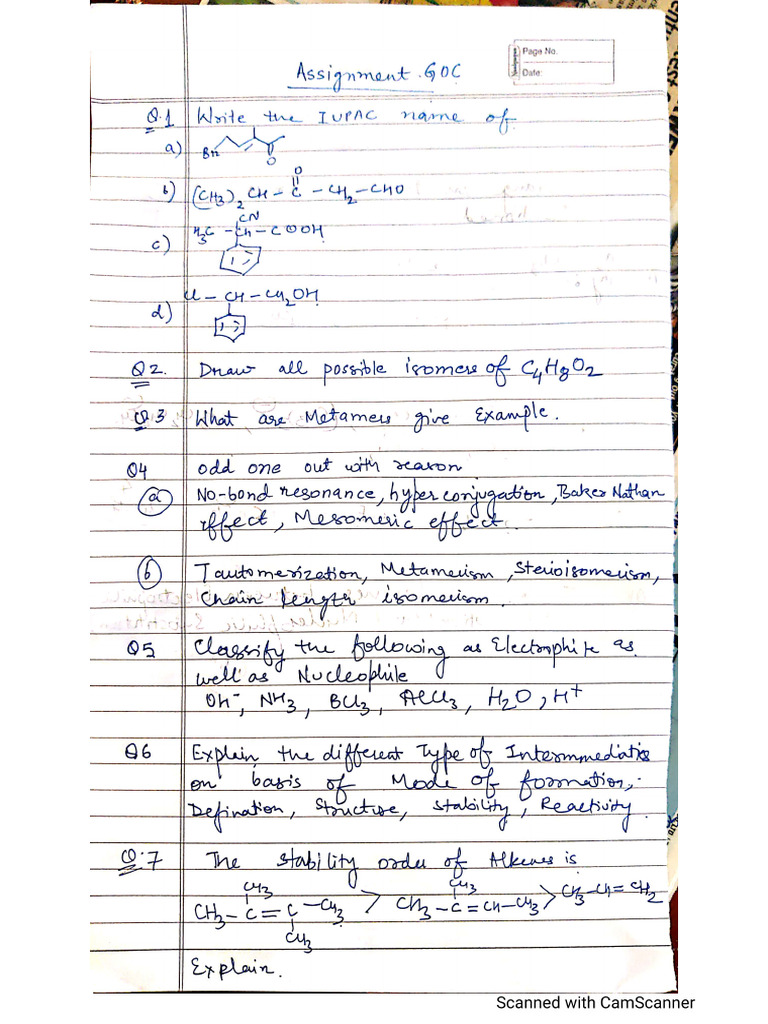 Page No.
Date:
Assignment. GOC
Q.1 Write the IUPAC name of
a) Br O
b) (CH3)2 CH - C - CH2 - CHO
O
CN
H3C - CH - COOH
c)
Cl - CH - CH2OH
d)
Q2. Draw all possible isomers of C4H8O2
Q.3 What are Metamers give Example.
Q4 odd one out with reason
(a) No-bond resonance, hyperconjugation, Baker Nathan
effect, Mesomeric effect.
(b) Tautomerization, Metamerism, Sterioisomerism,
Chain length isomerism.
Q5 Classify the following as Electrophile as
well as Nucleophile
OH-, NH3, BCl3, AlCl3, H2O, H+
Q6 Explain the different Type of Intermmediates
on basis of Mode of formation,
Defination, Structure, stability, Reactivity.
Q.7 The stability order of Alkenes is
CH3 CH3
CH3 - C = C - CH3 > CH3 - C = CH - CH3 > CH3 - CH = CH2
CH3
Explain.
Scanned with CamScanner